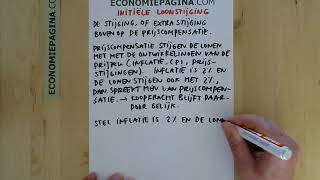 ECONOMIEPAGINA.COM
INITIËLE LOONSTIJGING
DE STIJGING, OF EXTRA STIJGING
BOVEN OP DE PRIJSCOMPENSATIE.
PRIJSCOMPENSATIE STIJGEN DE LONEN
MET MET DE ONTWIKKELINGEN VAN DE
PRIJZEN (INFLATIE, CPI, PRIJS-
STIJGINGEN). INFLATIE IS 2% EN
DE LONEN STIJGEN OOK MET 2%,
DAN SPREEKT MEN VAN PRIJSCOMPEN-
SATIE. → KOOPKRACHT BLIJFT DAAR-
DOOR GELIJK.
STEL INFLATIE IS 2% EN DE LONE
ECONOMIEPAGINA.COM